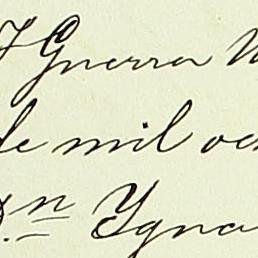 Y Guerra
de mil oc
Dn Ygna